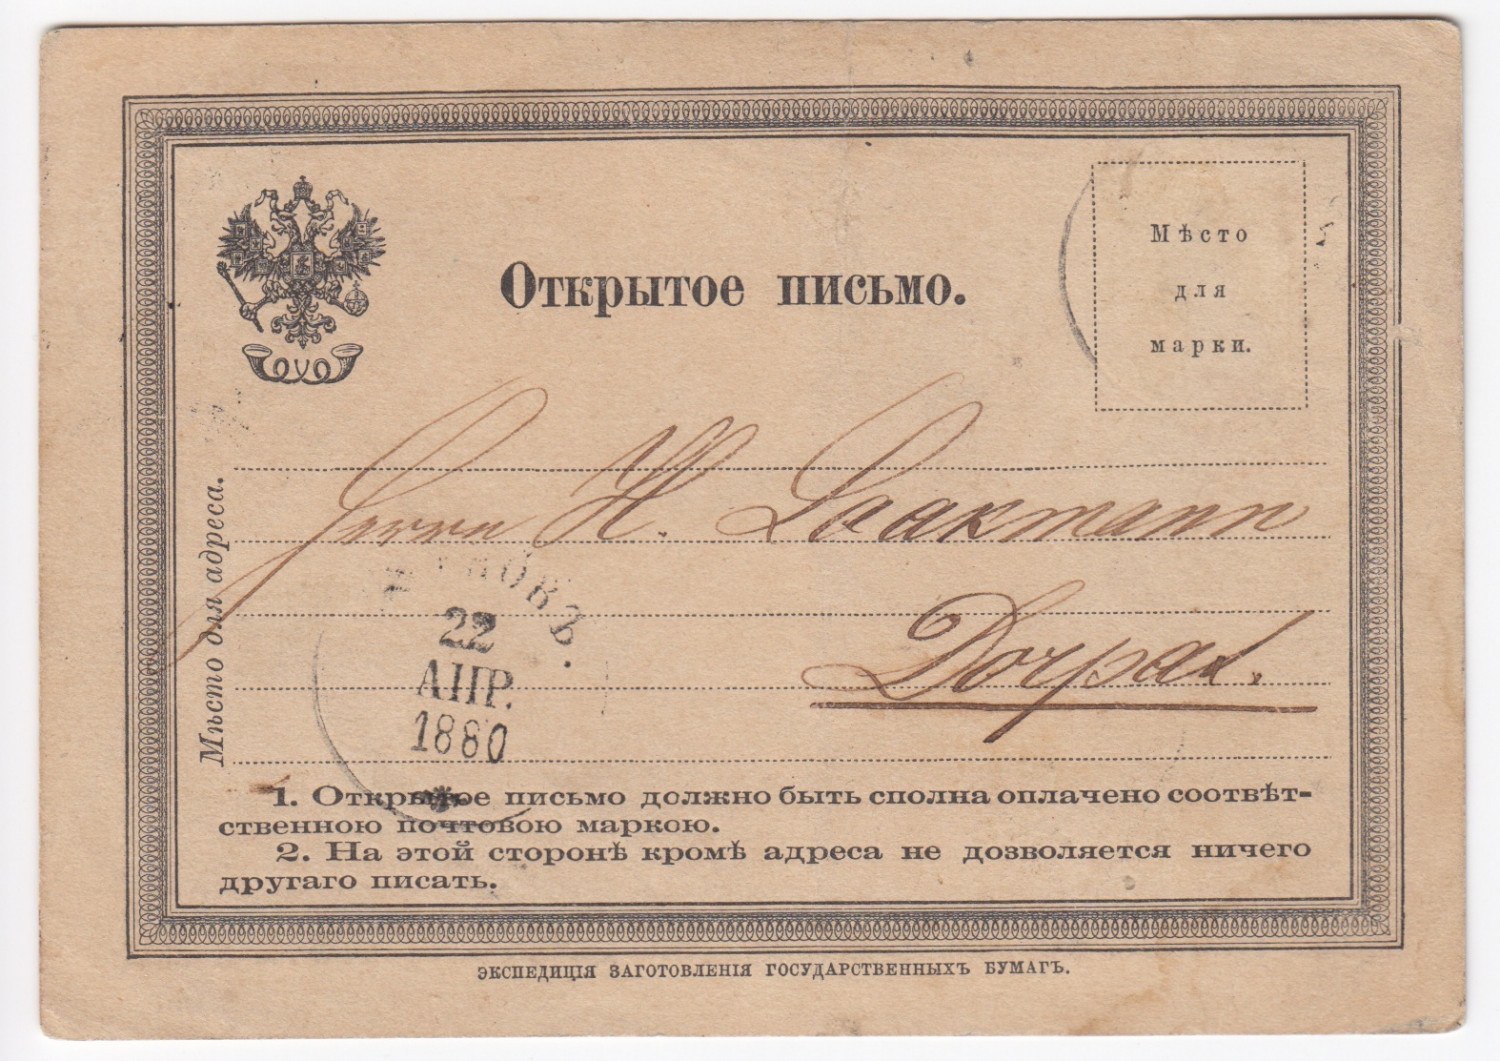 Открытое письмо.
Мѣсто
для
марки.
Herrn H. Laakmann
Dorpat.
Мѣсто для адреса.
22
АПР.
1880
1. Открытое письмо должно быть сполна оплачено соотвѣт-
ственною почтовою маркою.
2. На этой сторонѣ кромѣ адреса не дозволяется ничего
другаго писать.
ЭКСПЕДИЦІЯ ЗАГОТОВЛЕНІЯ ГОСУДАРСТВЕННЫХЪ БУМАГЪ.